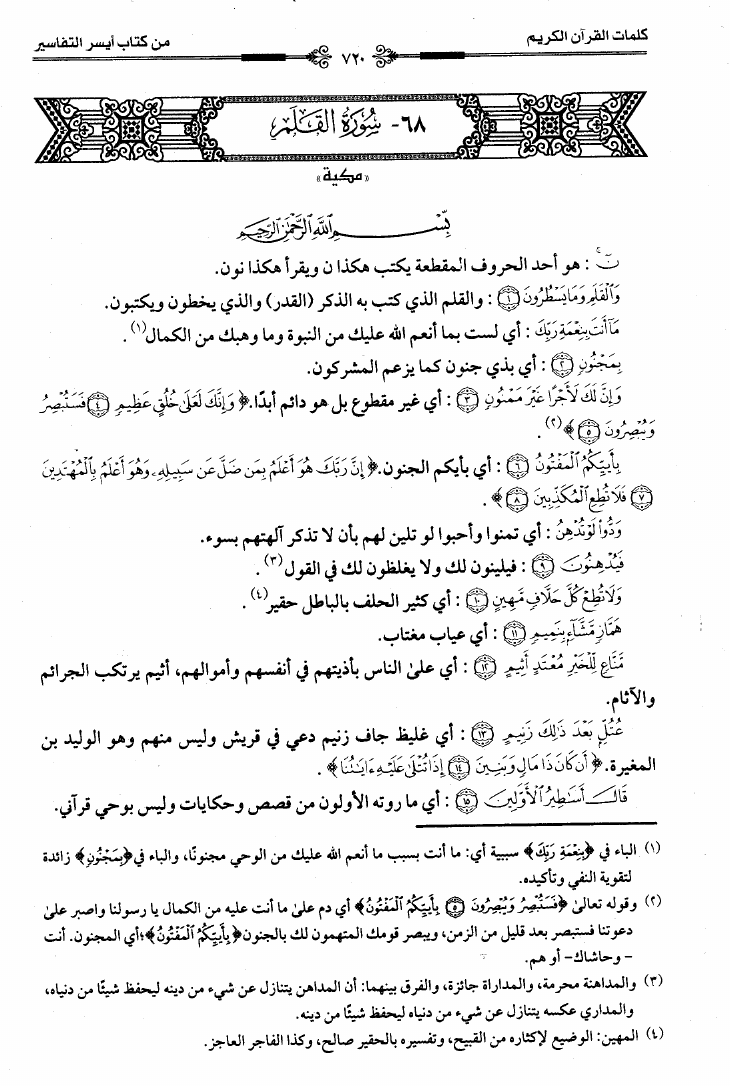 كلمات القرآن الكريم
٧٢٠
من كتاب أيسر التفاسير
٦٨- سُورَةُ القَلَمِ
«مكية»
بِسْمِ اللَّهِ الرَّحْمَٰنِ الرَّحِيمِ
نٓ : هو أحد الحروف المقطعة يكتب هكذا ن ويقرأ هكذا نون.
وَالْقَلَمِ وَمَا يَسْطُرُونَ ﴿١﴾ : والقلم الذي كتب به الذكر (القدر) والذي يخطون ويكتبون.
مَا أَنتَ بِنِعْمَةِ رَبِّكَ : أي لست بما أنعم الله عليك من النبوة وما وهبك من الكمال(١).
بِمَجْنُونٍ ﴿٢﴾ : أي بذي جنون كما يزعم المشركون.
وَإِنَّ لَكَ لَأَجْرًا غَيْرَ مَمْنُونٍ ﴿٣﴾ : أي غير مقطوع بل هو دائم أبدًا.﴿ وَإِنَّكَ لَعَلَىٰ خُلُقٍ عَظِيمٍ ﴿٤﴾ فَسَتُبْصِرُ
وَيُبْصِرُونَ ﴿٥﴾ ﴾(٢).
بِأَييِّكُمُ الْمَفْتُونُ ﴿٦﴾ : أي بأيكم الجنون.﴿ إِنَّ رَبَّكَ هُوَ أَعْلَمُ بِمَن ضَلَّ عَن سَبِيلِهِ وَهُوَ أَعْلَمُ بِالْمُهْتَدِينَ
﴿٧﴾ فَلَا تُطِعِ الْمُكَذِّبِينَ ﴿٨﴾ ﴾.
وَدُّوا لَوْ تُدْهِنُ : أي تمنوا وأحبوا لو تلين لهم بأن لا تذكر آلهتهم بسوء.
فَيُدْهِنُونَ ﴿٩﴾ : فيلينون لك ولا يغلظون لك في القول(٣).
وَلَا تُطِعْ كُلَّ حَلَّافٍ مَّهِينٍ ﴿١٠﴾ : أي كثير الحلف بالباطل حقير(٤).
هَمَّازٍ مَّشَّاءٍ بِنَمِيمٍ ﴿١١﴾ : أي عياب مغتاب.
مَّنَّاعٍ لِّلْخَيْرِ مُعْتَدٍ أَثِيمٍ ﴿١٢﴾ : أي على الناس بأذيتهم في أنفسهم وأموالهم، أثيم يرتكب الجرائم
والآثام.
عُتُلٍّ بَعْدَ ذَٰلِكَ زَنِيمٍ ﴿١٣﴾ : أي غليظ جاف زنيم دعي في قريش وليس منهم وهو الوليد بن
المغيرة.﴿ أَن كَانَ ذَا مَالٍ وَبَنِينَ ﴿١٤﴾ إِذَا تُتْلَىٰ عَلَيْهِ ءَايَاتُنَا ﴾.
قَالَ أَسَاطِيرُ الْأَوَّلِينَ ﴿١٥﴾ : أي ما روته الأولون من قصص وحكايات وليس بوحي قرآني.
(١) الباء في ﴿بِنِعْمَةِ رَبِّكَ﴾ سببية أي: ما أنت بسبب ما أنعم الله عليك من الوحي مجنونًا، والباء في﴿بِمَجْنُونٍ﴾ زائدة
لتقوية النفي وتأكيده.
(٢) وقوله تعالى ﴿فَسَتُبْصِرُ وَيُبْصِرُونَ ﴿٥﴾ بِأَييِّكُمُ الْمَفْتُونُ﴾ أي دم على ما أنت عليه من الكمال يا رسولنا واصبر على
دعوتنا فستبصر بعد قليل من الزمن، ويبصر قومك المتهمون لك بالجنون﴿بِأَييِّكُمُ الْمَفْتُونُ﴾؛أي المجنون. أنت
- وحاشاك- أو هم.
(٣) والمداهنة محرمة، والمداراة جائزة، والفرق بينهما: أن المداهن يتنازل عن شيء من دينه ليحفظ شيئًا من دنياه،
والمداري عكسه يتنازل عن شيء من دنياه ليحفظ شيئًا من دينه.
(٤) المهين: الوضيع لإكثاره من القبيح، وتفسيره بالحقير صالح، وكذا الفاجر العاجز.